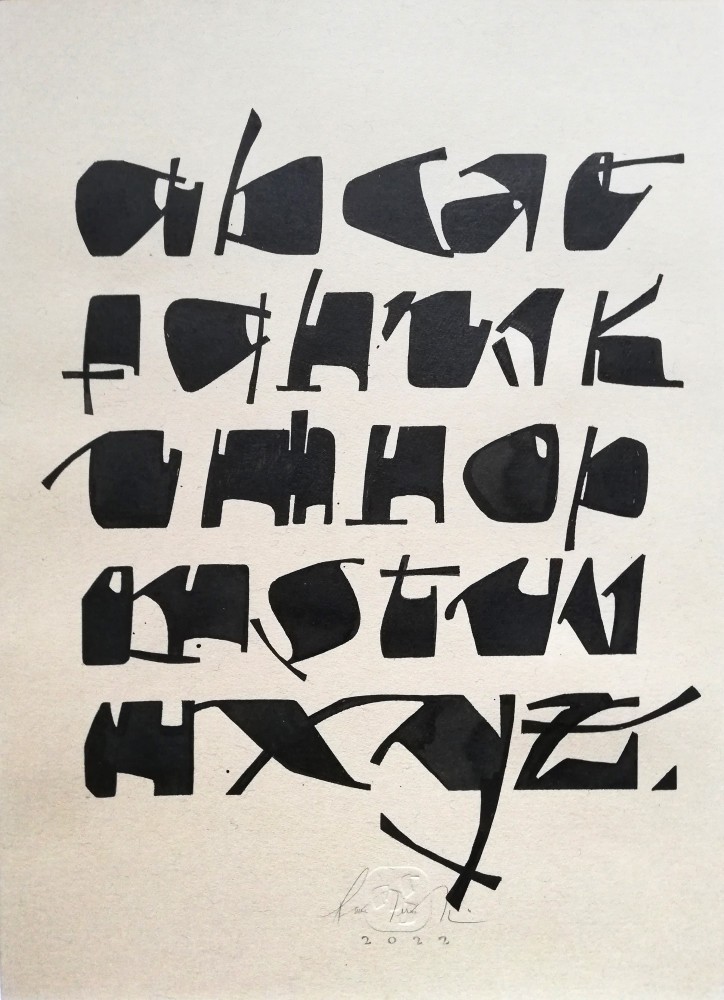 abcde
fghijk
lmnop
qrstuv
wxyz.
2022